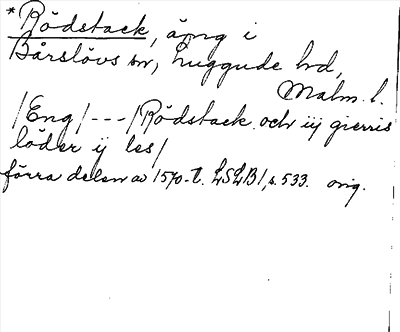 *Rödstack, äng i
Bårslövs sn, Luggude hd,
Malm. l.
/Eng/ --- /Rödstack och iij gierris
löder ij les/
förra delen av 1570-t. LSLB1, s. 533. orig.